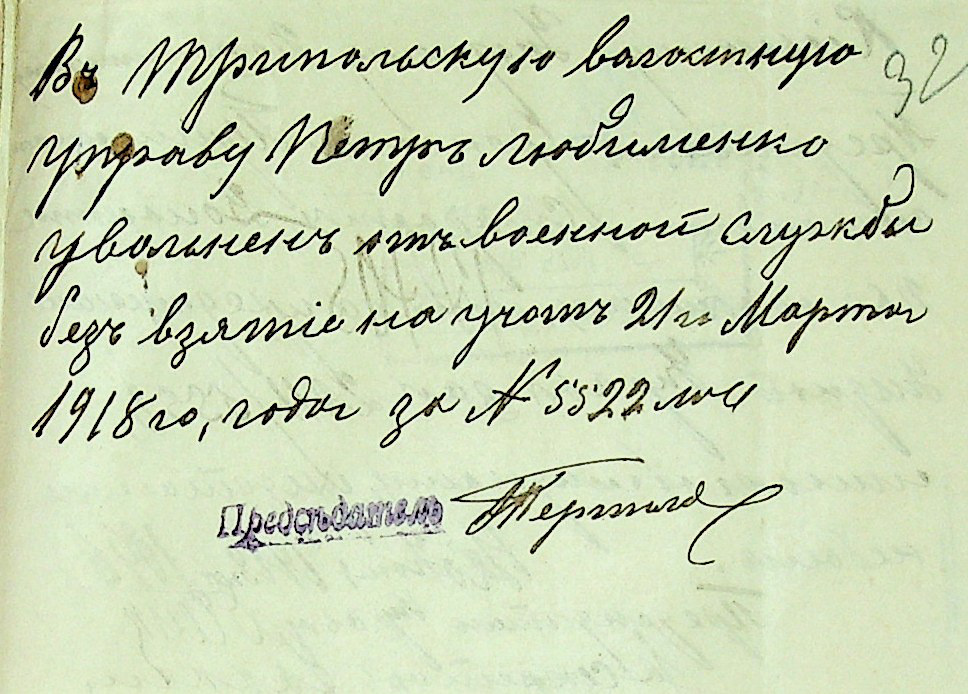 32
Въ Трипольскую волостную
управу Петръ Любименко
увольненъ отъ военной службы
безъ взятіе на учотъ 21 го Марта
1918 го, года за № 5522 мъ
Предсѣдатель